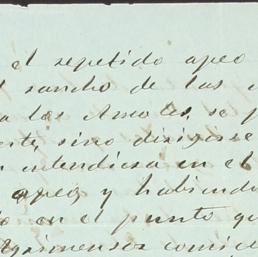 el repetido apeo
sancho de las
a los Amoles, se p
ente, sino dirigirse
intendiesa en el
apeo y habiend
o en el punto qu
Agrimensor comic